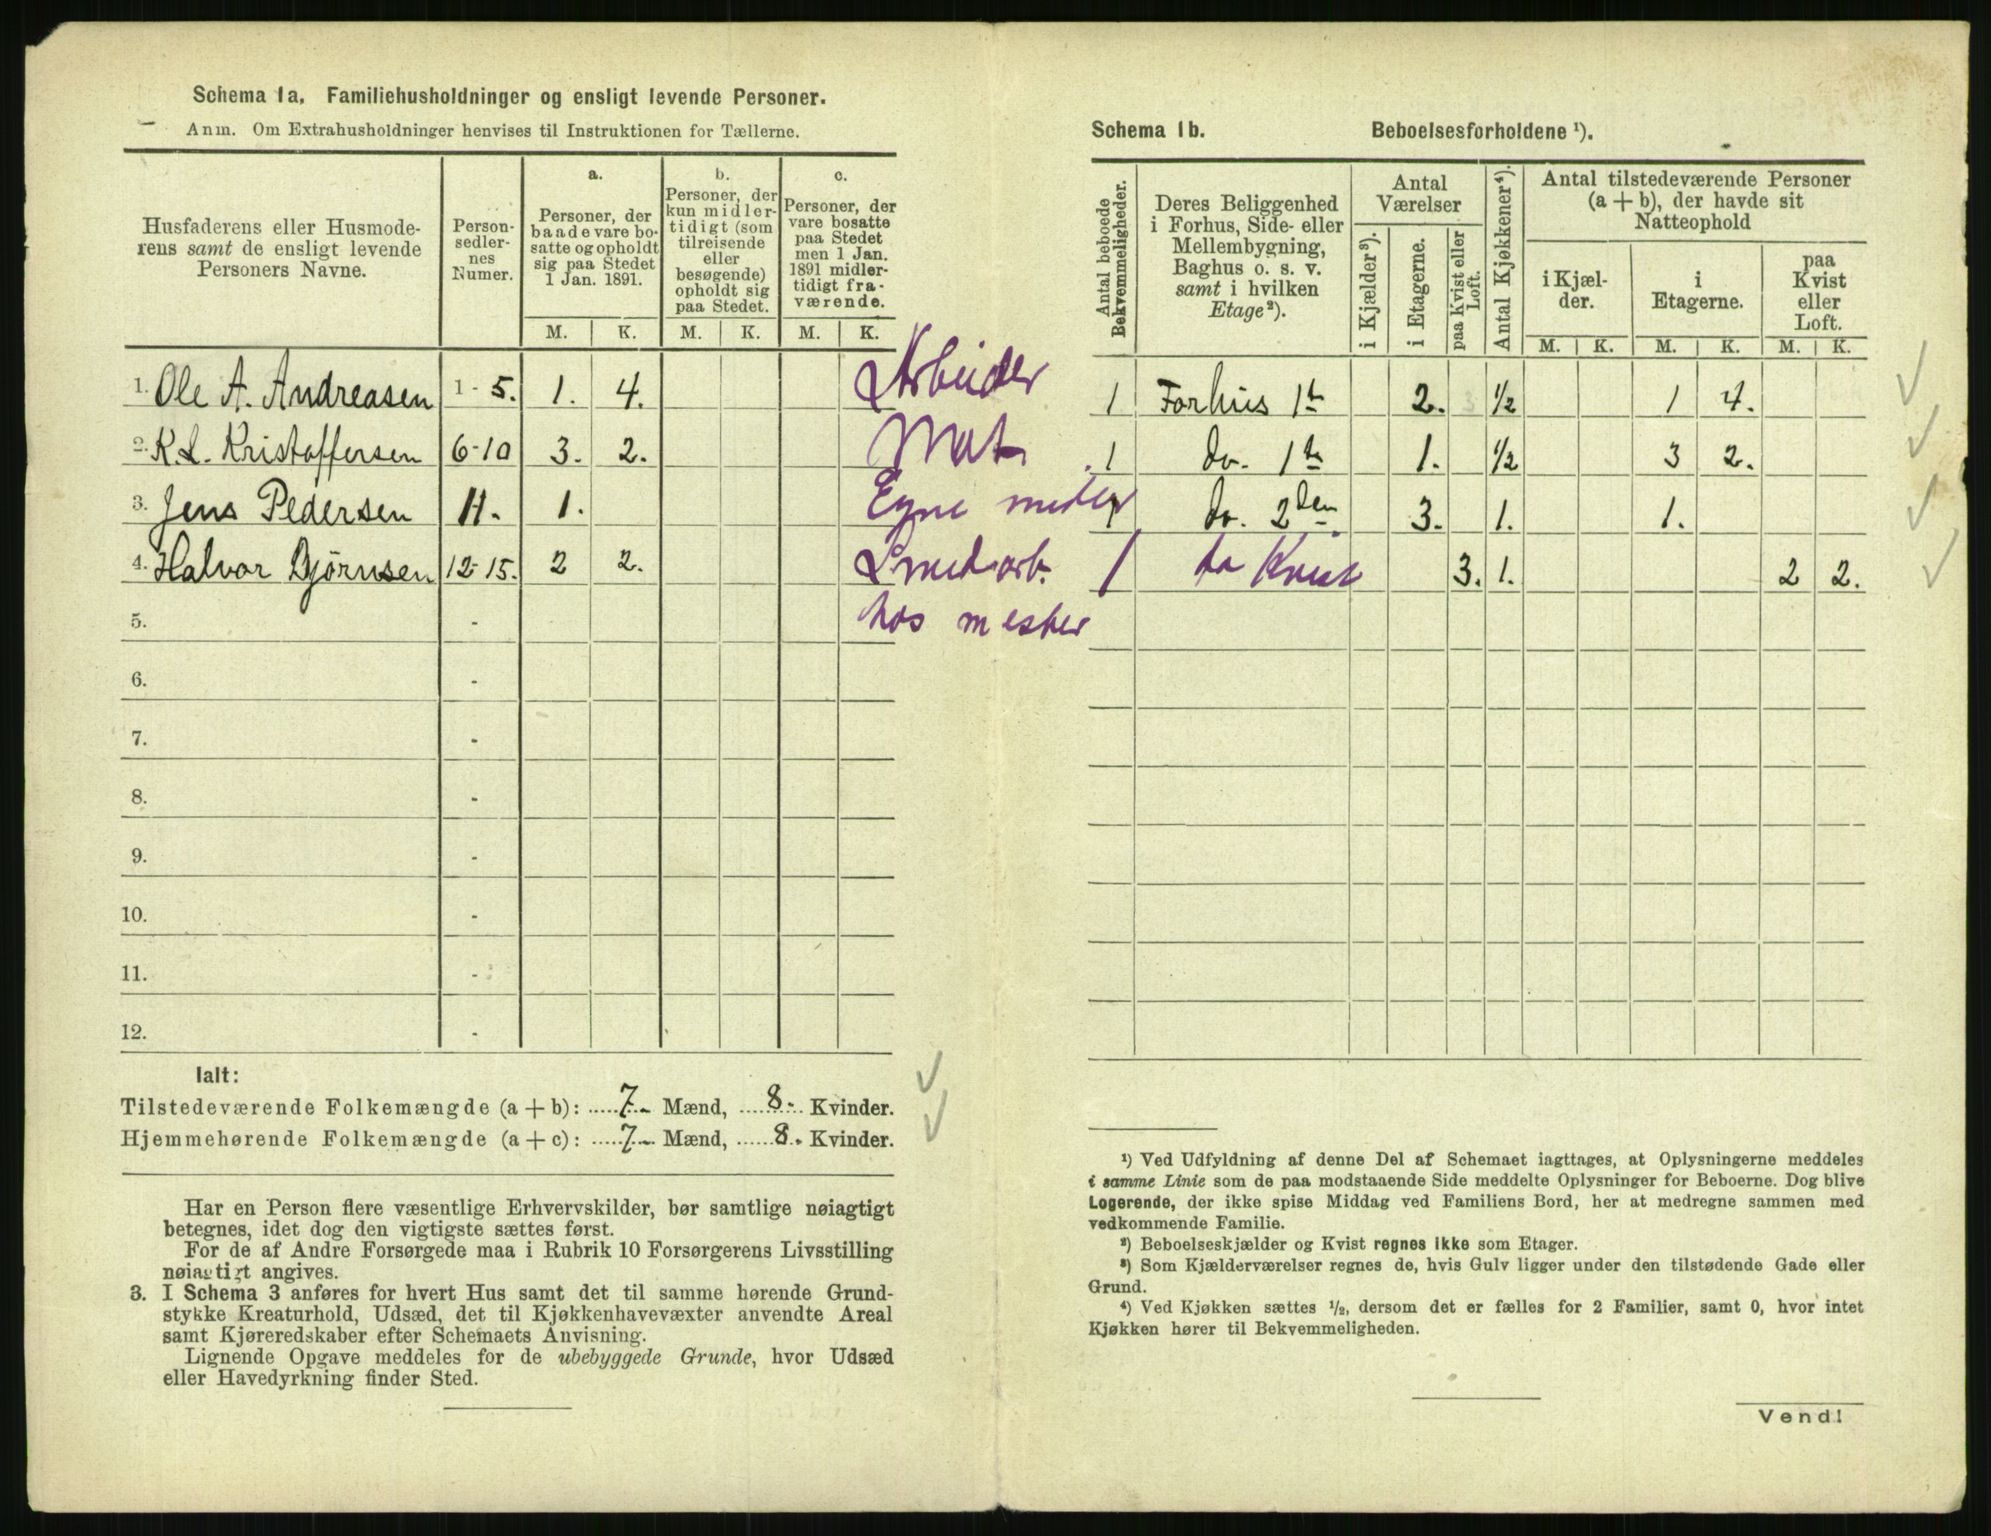 Schema 1a. Familiehusholdninger og ensligt levende Personer.
Anm. Om Extrahusholdninger henvises til Instruktionen for Tællerne.
Husfaderens eller Husmoderens samt de ensligt levende Personers Navne.
Personsedlernes Numer.
a.
Personer, der baade vare bosatte og opholdt sig paa Stedet 1 Jan. 1891.
b.
Personer, der kun midlertidigt (som tilreisende eller besøgende) opholdt sig paa Stedet.
c.
Personer, der vare bosatte paa Stedet men 1 Jan. 1891 midlertidigt fraværende.
M. K. M. K. M. K.
1. Ole A. Andreasen 1-5. 1. 4. Arbeider
2. K. L. Kristoffersen 6-10 3. 2. Mat
3. Jens Pedersen 11. 1. Egne midler
4. Halvor Bjørnsen 12-15. 2 2. Smedarb.
hos mester
5. -
6. -
7. -
8. -
9. -
10. -
11. -
12. -
Ialt:
Tilstedeværende Folkemængde (a + b): 7 Mænd, 8. Kvinder.
Hjemmehørende Folkemængde (a + c): 7 Mænd, 8. Kvinder.
Har en Person flere væsentlige Erhvervskilder, bør samtlige nøiagtigt
betegnes, idet dog den vigtigste sættes først.
For de af Andre Forsørgede maa i Rubrik 10 Forsørgerens Livsstilling
nøiagtigt angives.
3. I Schema 3 anføres for hvert Hus samt det til samme hørende Grund-
stykke Kreaturhold, Udsæd, det til Kjøkkenhavevæxter anvendte Areal
samt Kjøreredskaber efter Schemaets Anvisning.
Lignende Opgave meddeles for de ubebyggede Grunde, hvor Udsæd
eller Havedyrkning finder Sted.
Schema 1b. Beboelsesforholdene ¹).
Antal beboede Bekvemmeligheder.
Deres Beliggenhed i Forhus, Side- eller Mellembygning, Baghus o. s. v. samt i hvilken Etage²).
Antal Værelser
i Kjælder³).
i Etagerne.
paa Kvist eller Loft.
Antal Kjøkkener⁴).
Antal tilstedeværende Personer (a + b), der havde sit Natteophold
i Kjælder.
i Etagerne.
paa Kvist eller Loft.
M. K. M. K. M. K.
1 Forhus 1te 2. 1/2 1 4.
1 do. 1te 1. 1/2 3 2.
1 do. 2den 3. 1. 1.
1 do Kvist 3. 1. 2 2.
¹) Ved Udfyldning af denne Del af Schemaet iagttages, at Oplysningerne meddeles
i samme Linie som de paa modstaaende Side meddelte Oplysninger for Beboerne. Dog blive
Logerende, der ikke spise Middag ved Familiens Bord, her at medregne sammen med
vedkommende Familie.
²) Beboelseskjælder og Kvist regnes ikke som Etager.
³) Som Kjælderværelser regnes de, hvis Gulv ligger under den tilstødende Gade eller
Grund.
⁴) Ved Kjøkken sættes ½, dersom det er fælles for 2 Familier, samt 0, hvor intet
Kjøkken hører til Bekvemmeligheden.
Vend!